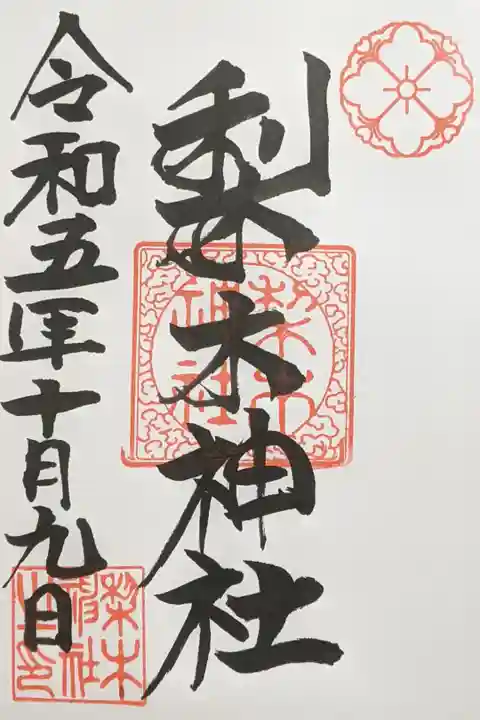 梨木神社
令和五年十月九日
梨木
神社
梨木
神社
之印